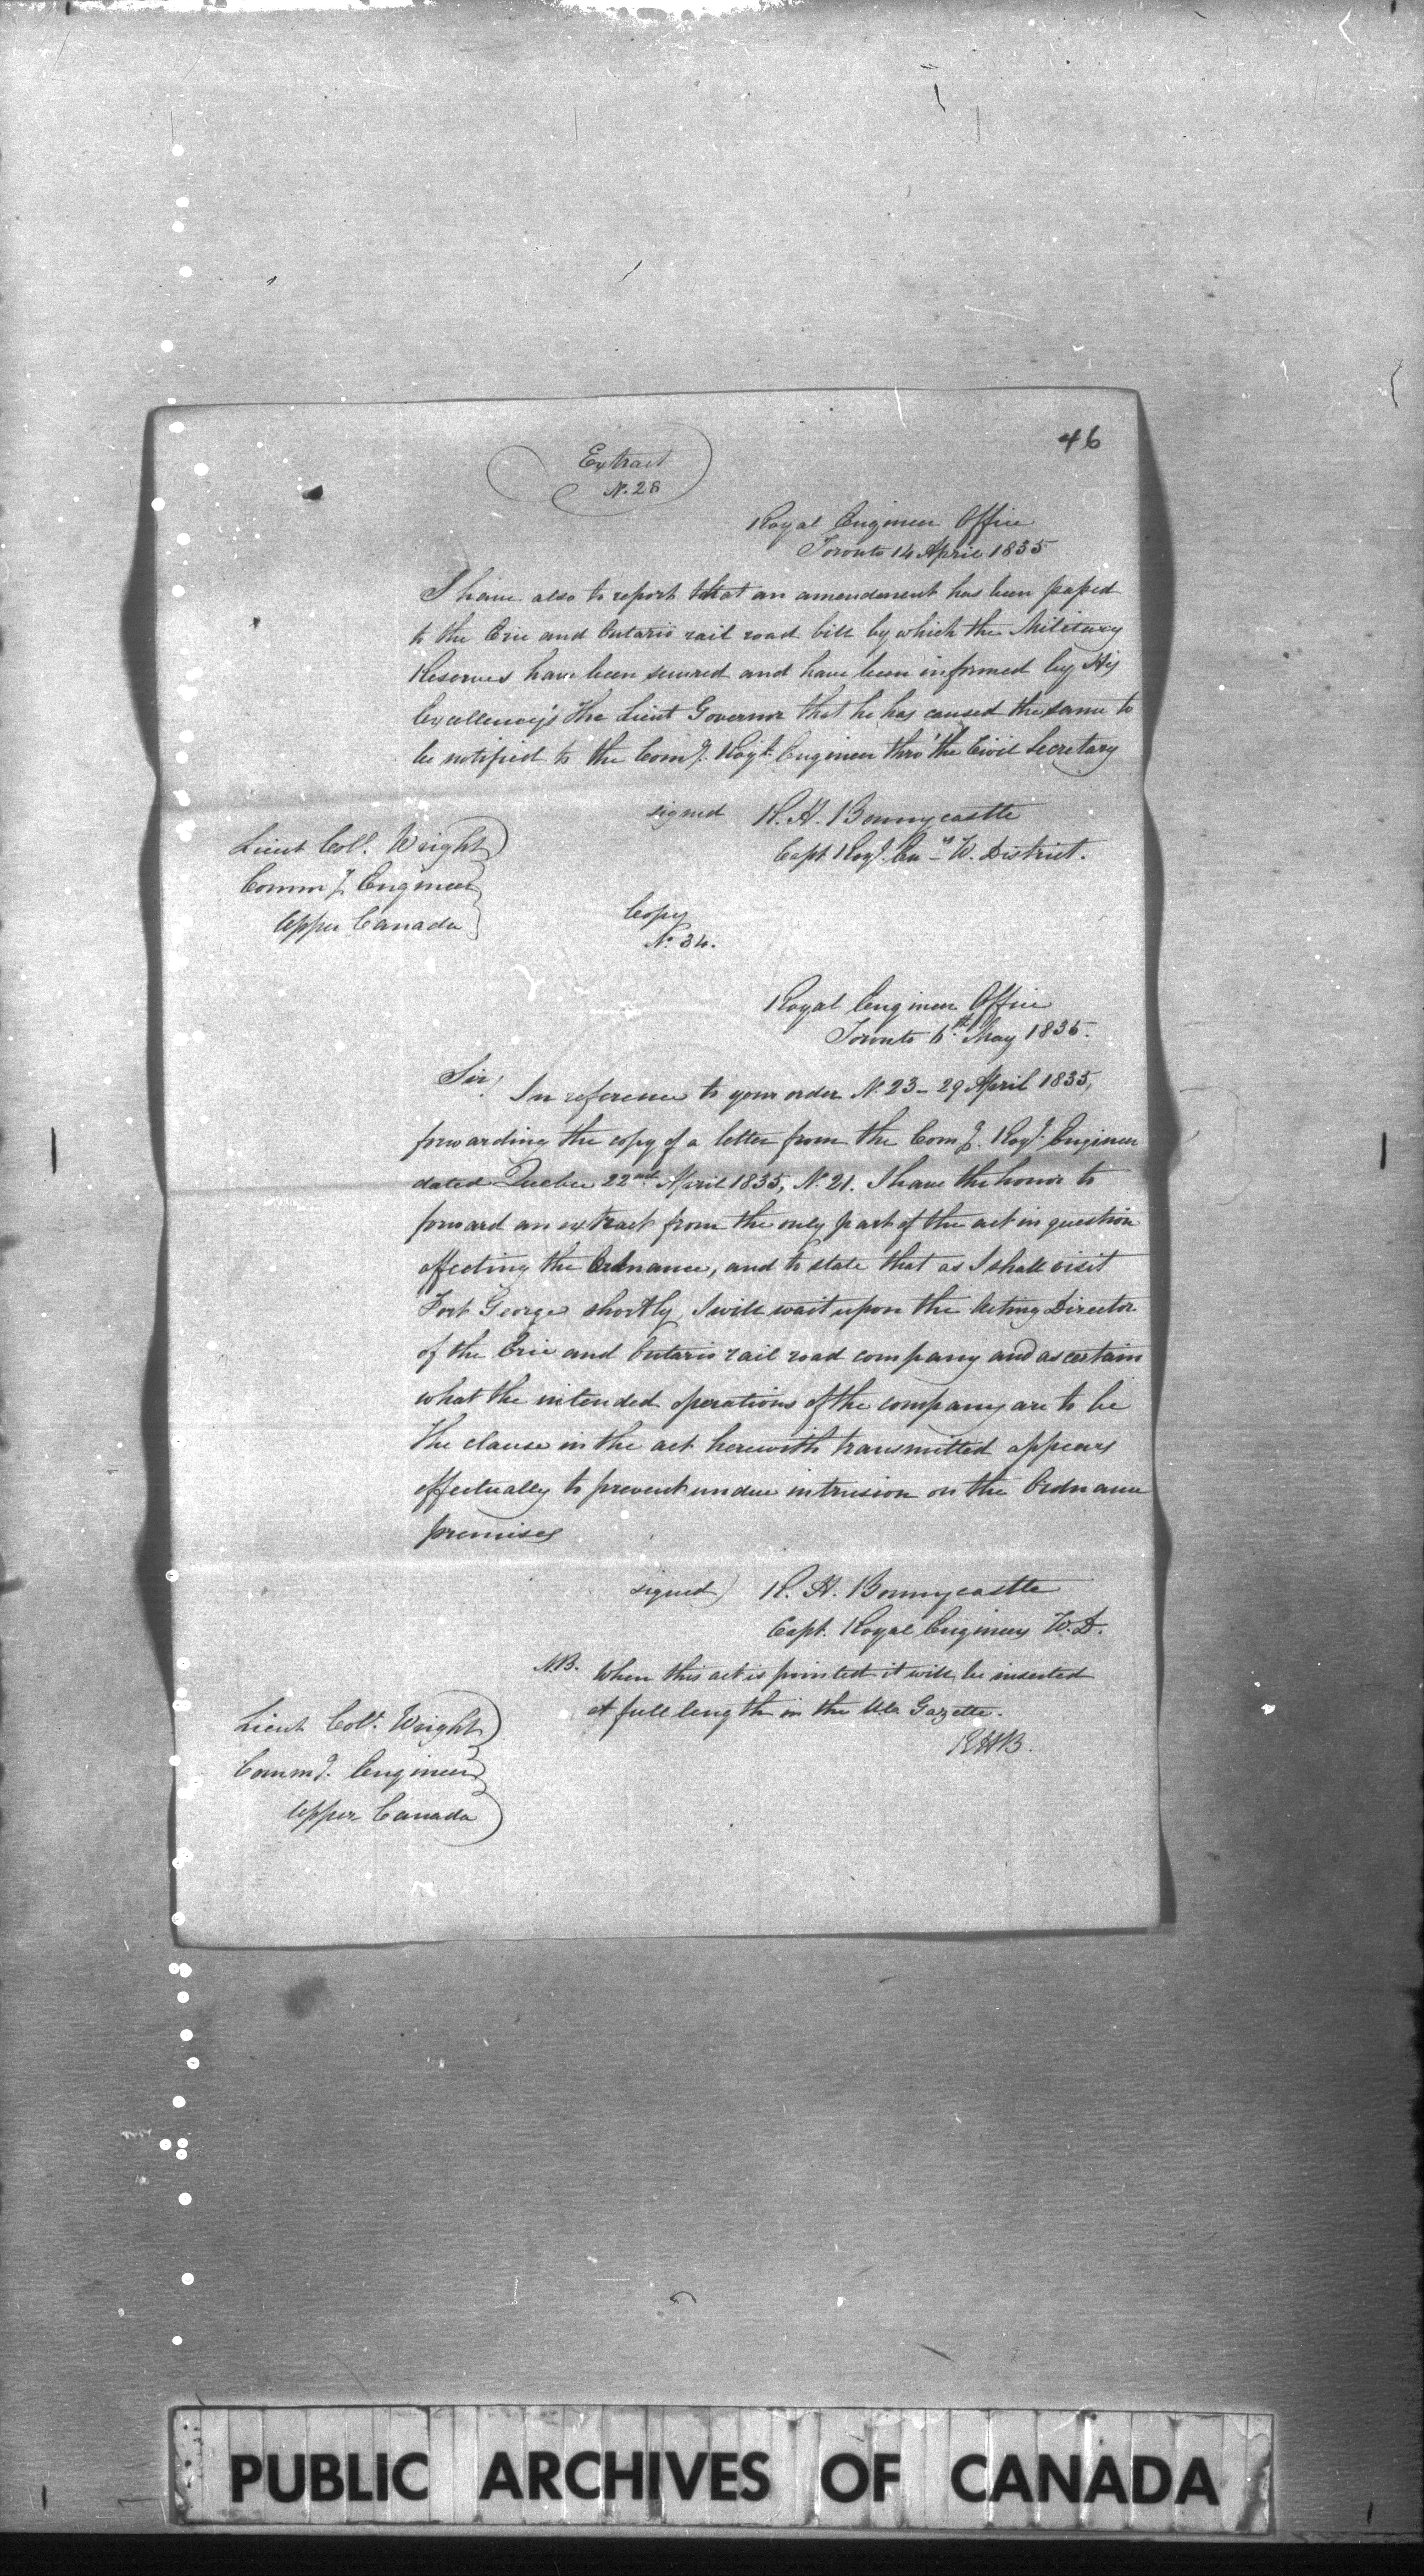 46
Extract
N. 28
Royal Engineer Office
Toronto 14 April 1835
I have also to report that an amendment has been passed
to the Erie and Ontario rail road bill by which the Military
Reserves have been secured and have been informed by His
Excellency's the Lieut Governor that he has caused the same to
be notified to the Comg. Royl. Engineer thro' the Civil Secretary
signed R. H. Bonnycastle
Capt Royl. Enrs W. District.
Lieut Coll. Wright
Commg Engineer
Upper Canada
Copy
No. 34.
Royal Engineer Office
Toronto 6th. May 1835.
Sir,
In reference to your order N. 23 - 29 April 1835,
forwarding the copy of a letter from the Comg. Royl. Engineer
dated Quebec 22nd April 1835, N. 21. I have the honor to
forward an extract from the only part of the act in question
affecting the Ordnance, and to state that as I shall visit
Fort George shortly, I will wait upon the Acting Director
of the Erie and Ontario rail road company and ascertain
what the intended operations of the company are to be
The clause in the act herewith transmitted appears
effectually to prevent undue intrusion on the Ordnance
premises
signed) R. H. Bonnycastle
Capt. Royal Engineers W. D.
N.B. When this act is printed it will be inserted
at full length in the Gazette.
RHB.
Lieut Coll. Wright
Commg. Engineer
Upper Canada
PUBLIC ARCHIVES OF CANADA